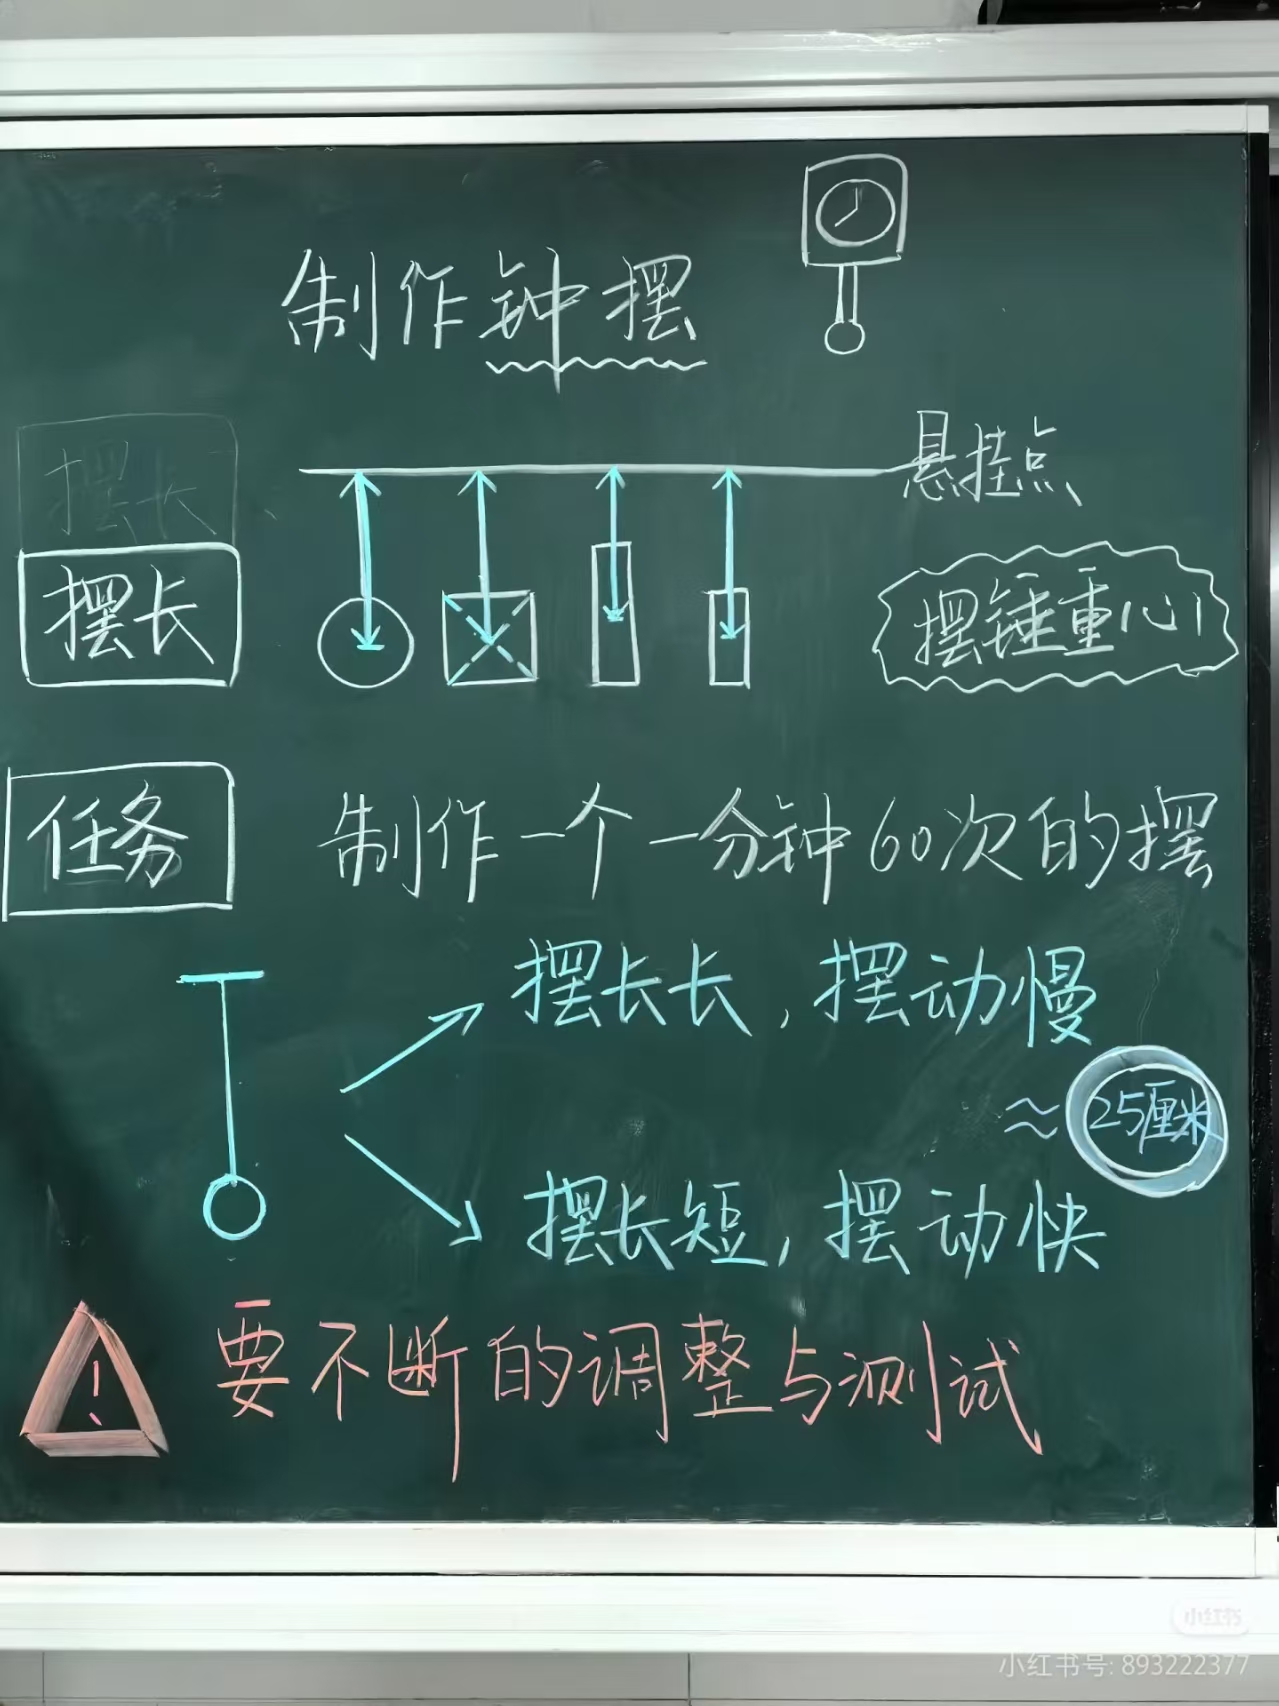 制作钟摆
悬挂点
摆长
摆长
摆锤重心
任务
制作一个一分钟60次的摆
摆长长,摆动慢
≈25厘米
摆长短,摆动快
!
要不断的调整与测试
小红书
小红书号: 893222377